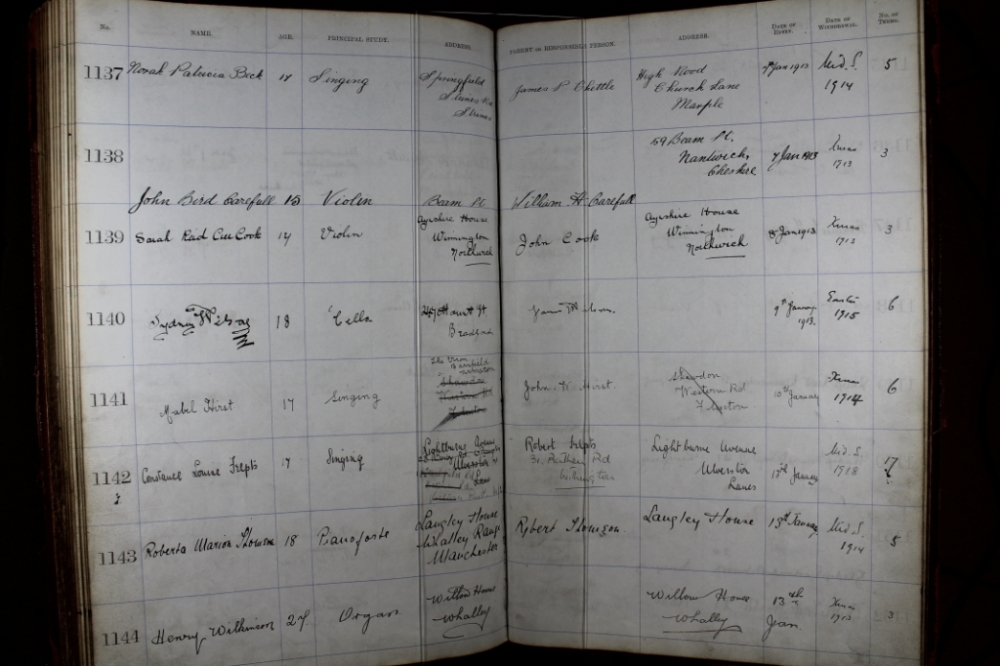 No. NAME. AGE. PRINCIPAL STUDY. ADDRESS. PARENT OR RESPONSIBLE PERSON. ADDRESS. DATE OF ENTRY. DATE OF WITHDRAWAL. No. OF TERMS.
1137 Norah Patricia 18 Singing Springfield James P Chettle High Wood 7 Jan 1913 Mid. S. 5
Church Lane 1914
Marple
1138 59 Beam St. 7 Jan 1913 Xmas 3
Nantwich 1913
Cheshire
John Bird Carefull 15 Violin Beam St William H. Carefull
1139 Sarah Cook 14 Violin Ayrshire House John Cook Ayrshire House 8 Jan 1913 Xmas 3
Winnington Winnington 1913
Northwich Northwich
1140 Sydney Wilson 18 'Cello James Wilson 9th January Easter 6
1913. 1915
1141 Mabel Hirst 17 Singing John W Hirst Western Rd 10th January Xmas 6
1914
1142 Constance Louise 17 Singing Lightburne Avenue Robert Lightburne Avenue 13th January Mid. S. 17
Ulverston Rd Ulverston 1918
Lancs
1143 Roberta Marion Thomson 18 Pianoforte Langley House Robert Thomson Langley House 13th January Mid. S. 5
Whalley Range 1914
Manchester
1144 Henry Wilkinson 24 Organ Willow House Willow House 13th Xmas 3
Whalley Whalley Jan 1913